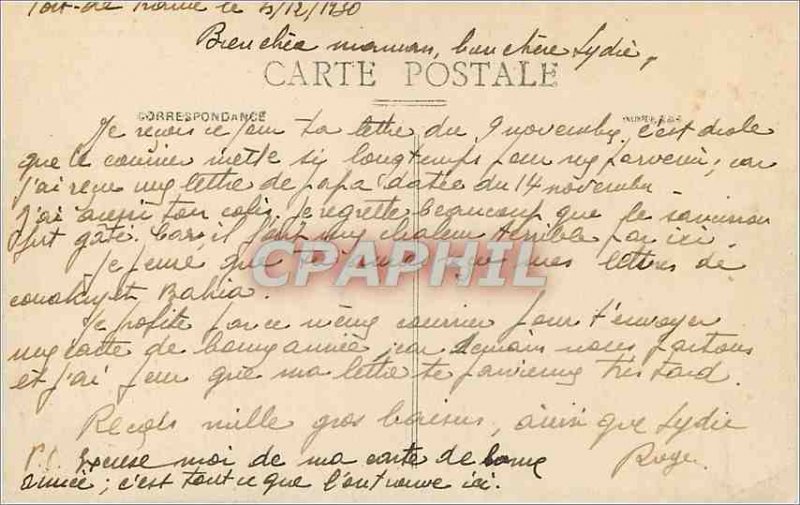 Fort-de France le 5/12/1930
Bien chée maman, bien chère Lydie,
CARTE POSTALE
CORRESPONDANCE
Je reçois ce jour ta lettre du 9 novembre, c'est drole
que le courrier mette si longtemps pour my parvenir, car
j'ai reçu une lettre de papa datée du 14 novembre.
J'ai aussi ton colis. Je regrette beaucoup que le saucisson
fut gâté. Car il fait une chaleur terrible par ici.
Je pense que tu mes lettres de
conakry et Bahia.
Je profite par ce même courrier pour t'envoyer
une carte de bonne année, car demain nous partons
et j'ai peur que ma lettre te parvienne très tard.
Reçois mille gros baisers, ainsi que Lydie
P.S. Excuse moi de ma carte de bonne Roger
année ; c'est tout ce que l'on trouve ici.
CPAPHIL